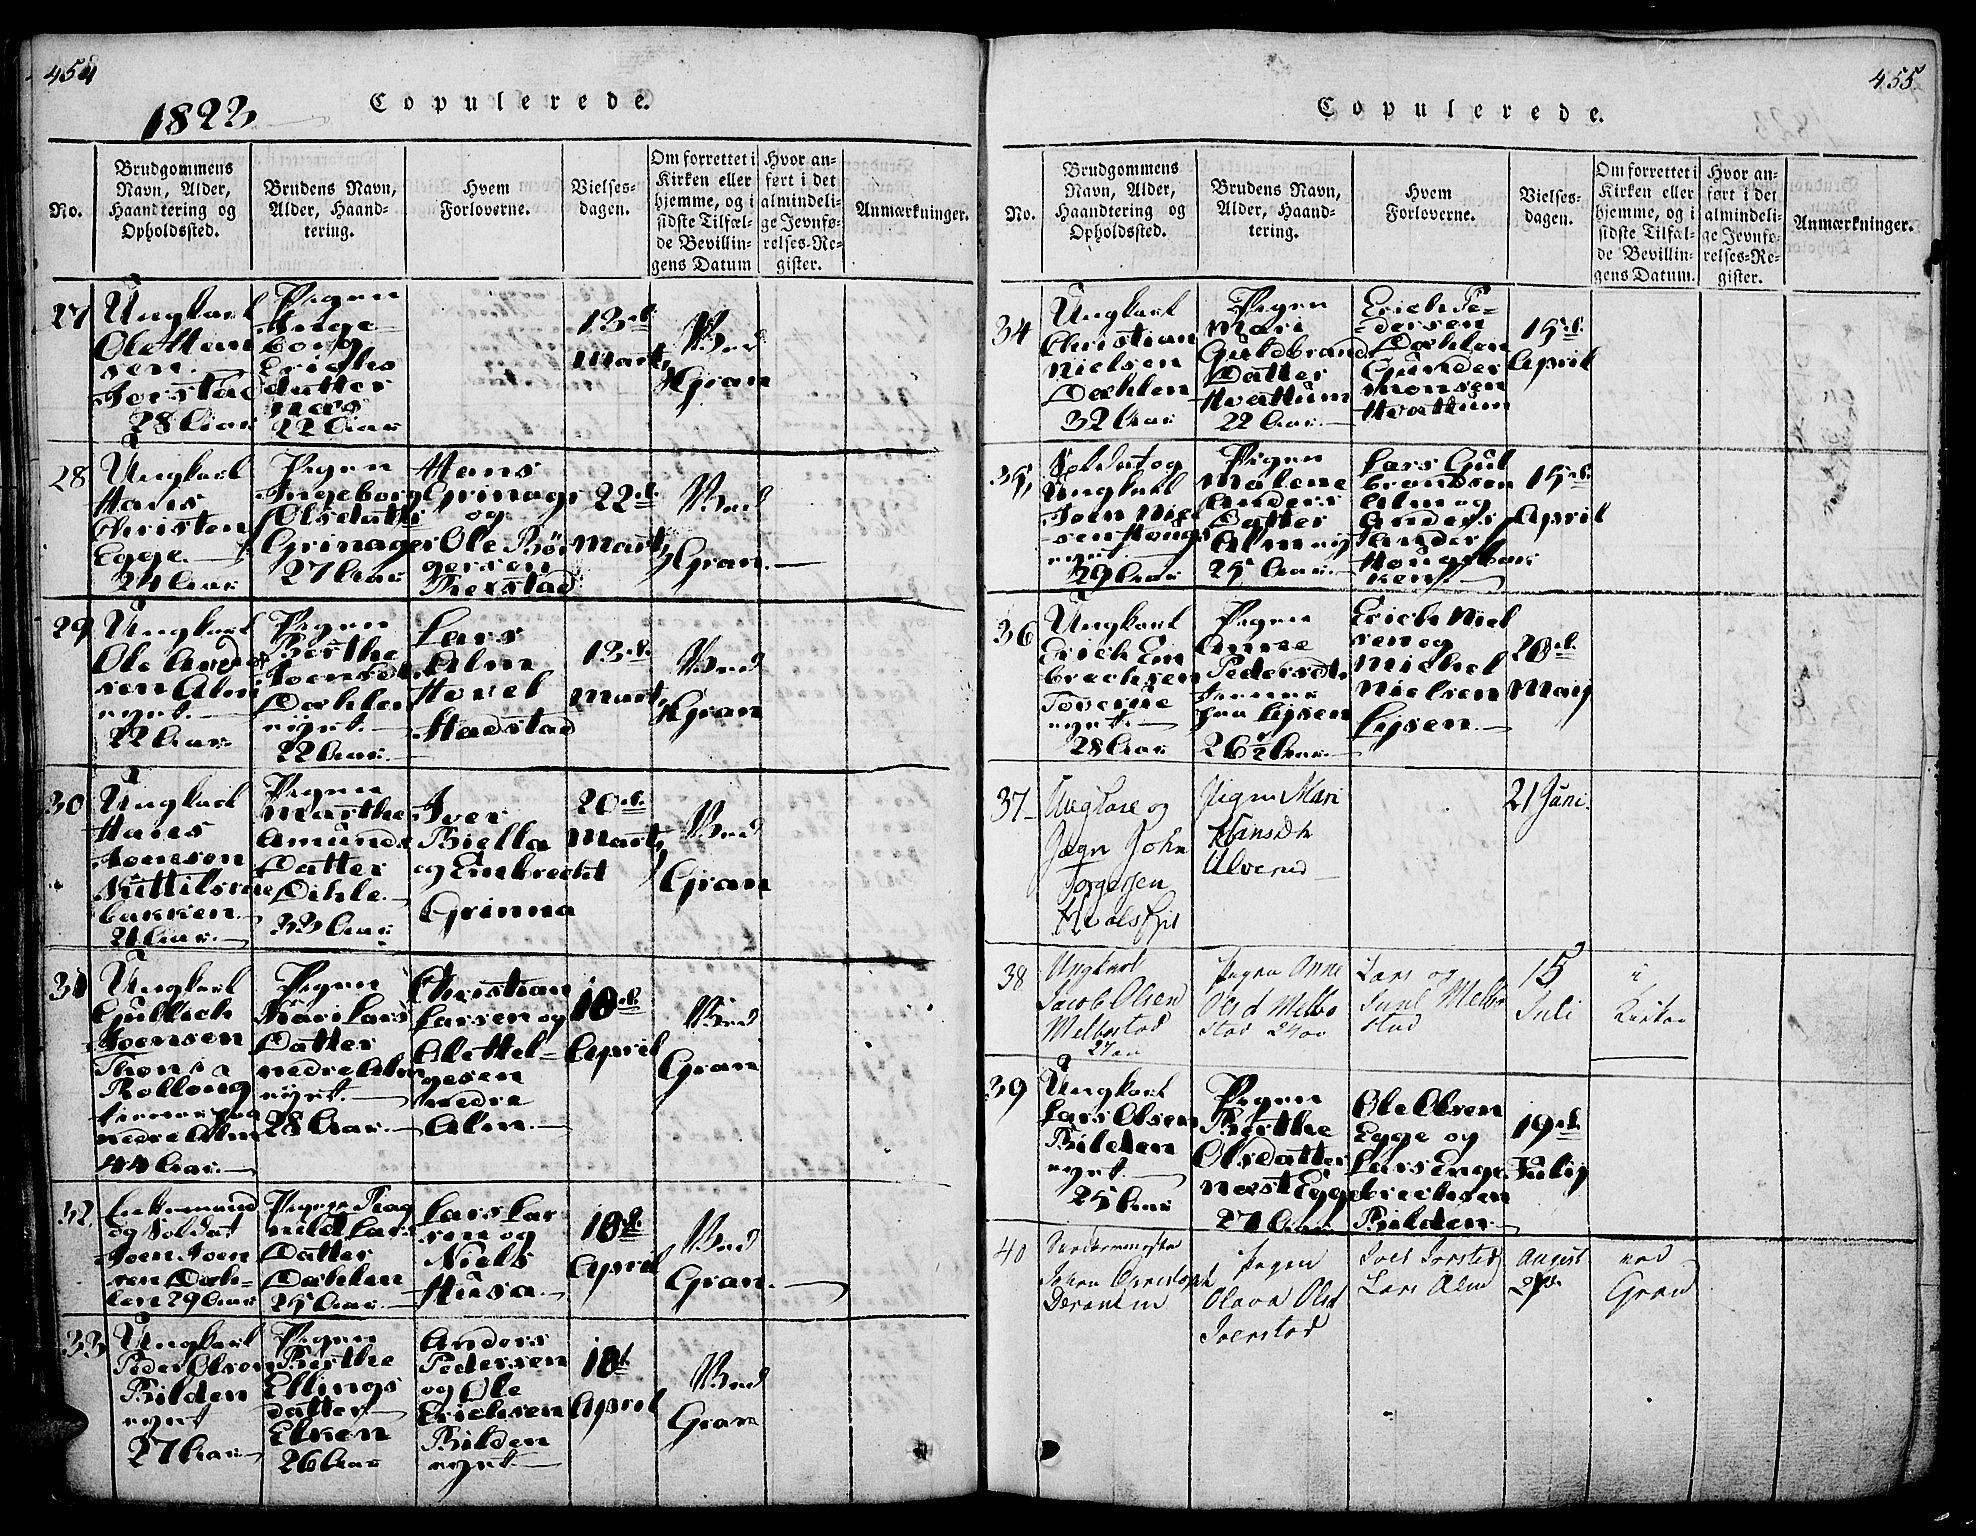 454
1823
Copulerede.
No.
Brudgommens
Navn, Alder,
Haandtering og
Opholdssted.
Brudens Navn,
Alder, Haand-
tering.
Hvem
Forloverne.
Vielses-
dagen.
Om forrettet i
Kirken eller
hjemme, og i
sidste Tilfæl-
de Bevillin-
gens Datum
Hvor an-
ført i det
almindeli-
ge Jevnfø-
relses-Re-
gister.
Anmærkninger.
27
Ungkarl
Ole Hen
sen
Joerstad
28 Aar
Pigen
Inge
borg
Erichs
datter
næs
22 Aar
13de
Mart,
Ved
Gran
28
Ungkarl
Hans
Christen
Egge
24 Aar
Pigen
Ingeborg
Olsdatter
Grinager
27 Aar
Hans
Grinager
og
Ole Bør
gersen
Tierstad
22de
Mart,
Ved
Gran
29
Ungkarl
Ole Ander
sen Alm
eyet
22 Aar
Pigen
Berthe
Joensdt
Dæhlen
eyet
22 Aar
Lars
Alm
Hovel
Hadstad
13de
Mart,
Ved
Gran
30
Ungkarl
Hans
Joenson
Kittilsrue
bakken
21 Aar
Pigen
Marthe
Amunds
Datter
Dihle
33 Aar
Iver
Biella
og Embrecht
Grinna
20de
Mart,
Ved
Gran
31
Ungkarl
Gullich
Joensen
Rollong
nedre Alm
44 Aar
Pigen
Kari Lars
Datter
nedre Alm
eyet
28 Aar
Christian
Larsen og
Ole Hel-
gesen
nedre
Alm
10de
April
Ved
Gran
32
og Soldat
Joen Joen
sen Dæh-
len 29 Aar
Pigen Rag
nild Lars
Datter
Dæhlen
25 Aar
Lars Lar
sen og
Niels
Husa
10de
April
Ved
Gran
33
Ungkarl
Peder Olsen
Bilden
eyet
27 Aar
Pigen
Berthe
Ellings
datter
Elken
26 Aar
Anders
Pedersen
og Ole
Erichsen
Bilden
eyet
10de
April
Ved
Gran
455
Copulerede.
No.
Brudgommens
Navn, Alder,
Haandtering og
Opholdssted.
Brudens Navn,
Alder, Haand-
tering.
Hvem
Forloverne.
Vielses-
dagen.
Om forrettet i
Kirken eller
hjemme, og i
sidste Tilfæl-
de Bevillin-
gens Datum.
Hvor an-
ført i det
almindeli-
ge Jevnfø-
relses-Re-
gister.
Anmærkninger.
34
Ungkarl
Christian
Nielsen
Dæhlen
32 Aar
Pigen
Mari
Guldbrands
Datter
Hvattum
22 Aar
Erich Pe-
dersen
Dæhlen
Gunder
Monsen
Hvattum
15de
April
35
Soldat og
Ungkarl
Joen Niel
sen
29 Aar
Pigen
Malene
Anders
Datter
Alm eyet
25 Aar
Lars Gul
brandsen
Alm og
Anders
15de
April
36
Ungkarl
Erich Em
brechsen
eyet
28 Aar
Pigen
Anne
Pedersdt
fra Lysen
26 1/2 Aar
Erich Niel
sen og
Michel
Nielsen
Lysen
20de
May
37
Ungkarl og
John
Torgersen
Pigen Mari
Hansdtr
Ulverud
21 Juni.
38
Ungkarl
Jacob Olsen
Melbostad
27 aar
Pigen Anne
Olsd Melbo
stad 24 aar
Lars og
Melbo
stad
15
Juli
i
Kirken
39
Ungkarl
Lars Olsen
Bilden
eyet
25 Aar
Pigen
Berthe
Olsdatter
næst Egge
27 Aar
Ole Olsen
Egge og
Lars Enge
brechtsen
Bilden
19de
July
40
Johan Christoph
Pigen
Olava Olsd
Joerstad
Joel Jorstad
Lars Alm
August
ved
Gran